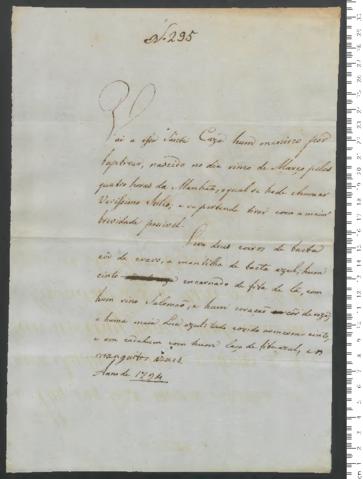 N. 295
Vai a essa Santa Caza hum menino por
baptizar, nascido no dia vinte de Março pelas
quatro horas da Manhãa, o qual se hade chamar
Verissimo Julio, e se pertende tirar com a maior
brevidade possivel.
Leva dous coeiros de baeta
côr de cravo, e mantilha de baeta azul, hum
cinto encarnado de fita de lã, com
hum sino Salomaõ, e hum coraçaõ côr de roza,
e huma meia Lua azul; tudo cozido no mesmo cinto,
e em cadahum com hum laço de fita azul, e os
manguitos azues
Anno de 1794